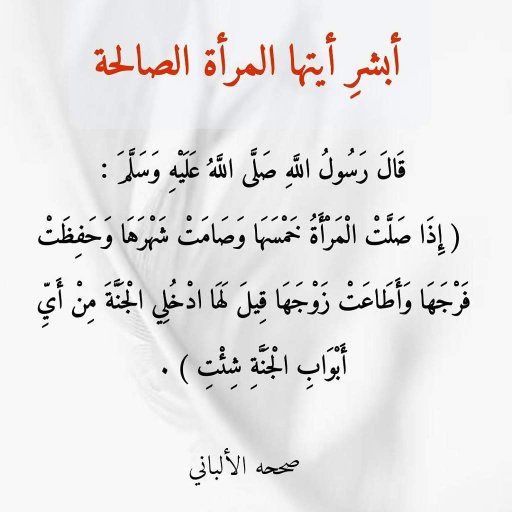 أبشرِ أيتها المرأة الصالحة
قَالَ رَسُولُ اللَّهِ صَلَّى اللَّهُ عَلَيْهِ وَسَلَّمَ :
( إِذَا صَلَّتْ الْمَرْأَةُ خَمْسَهَا وَصَامَتْ شَهْرَهَا وَحَفِظَتْ
فَرْجَهَا وَأَطَاعَتْ زَوْجَهَا قِيلَ لَهَا ادْخُلِي الْجَنَّةَ مِنْ أَيِّ
أَبْوَابِ الْجَنَّةِ شِئْتِ ) .
صححه الألباني